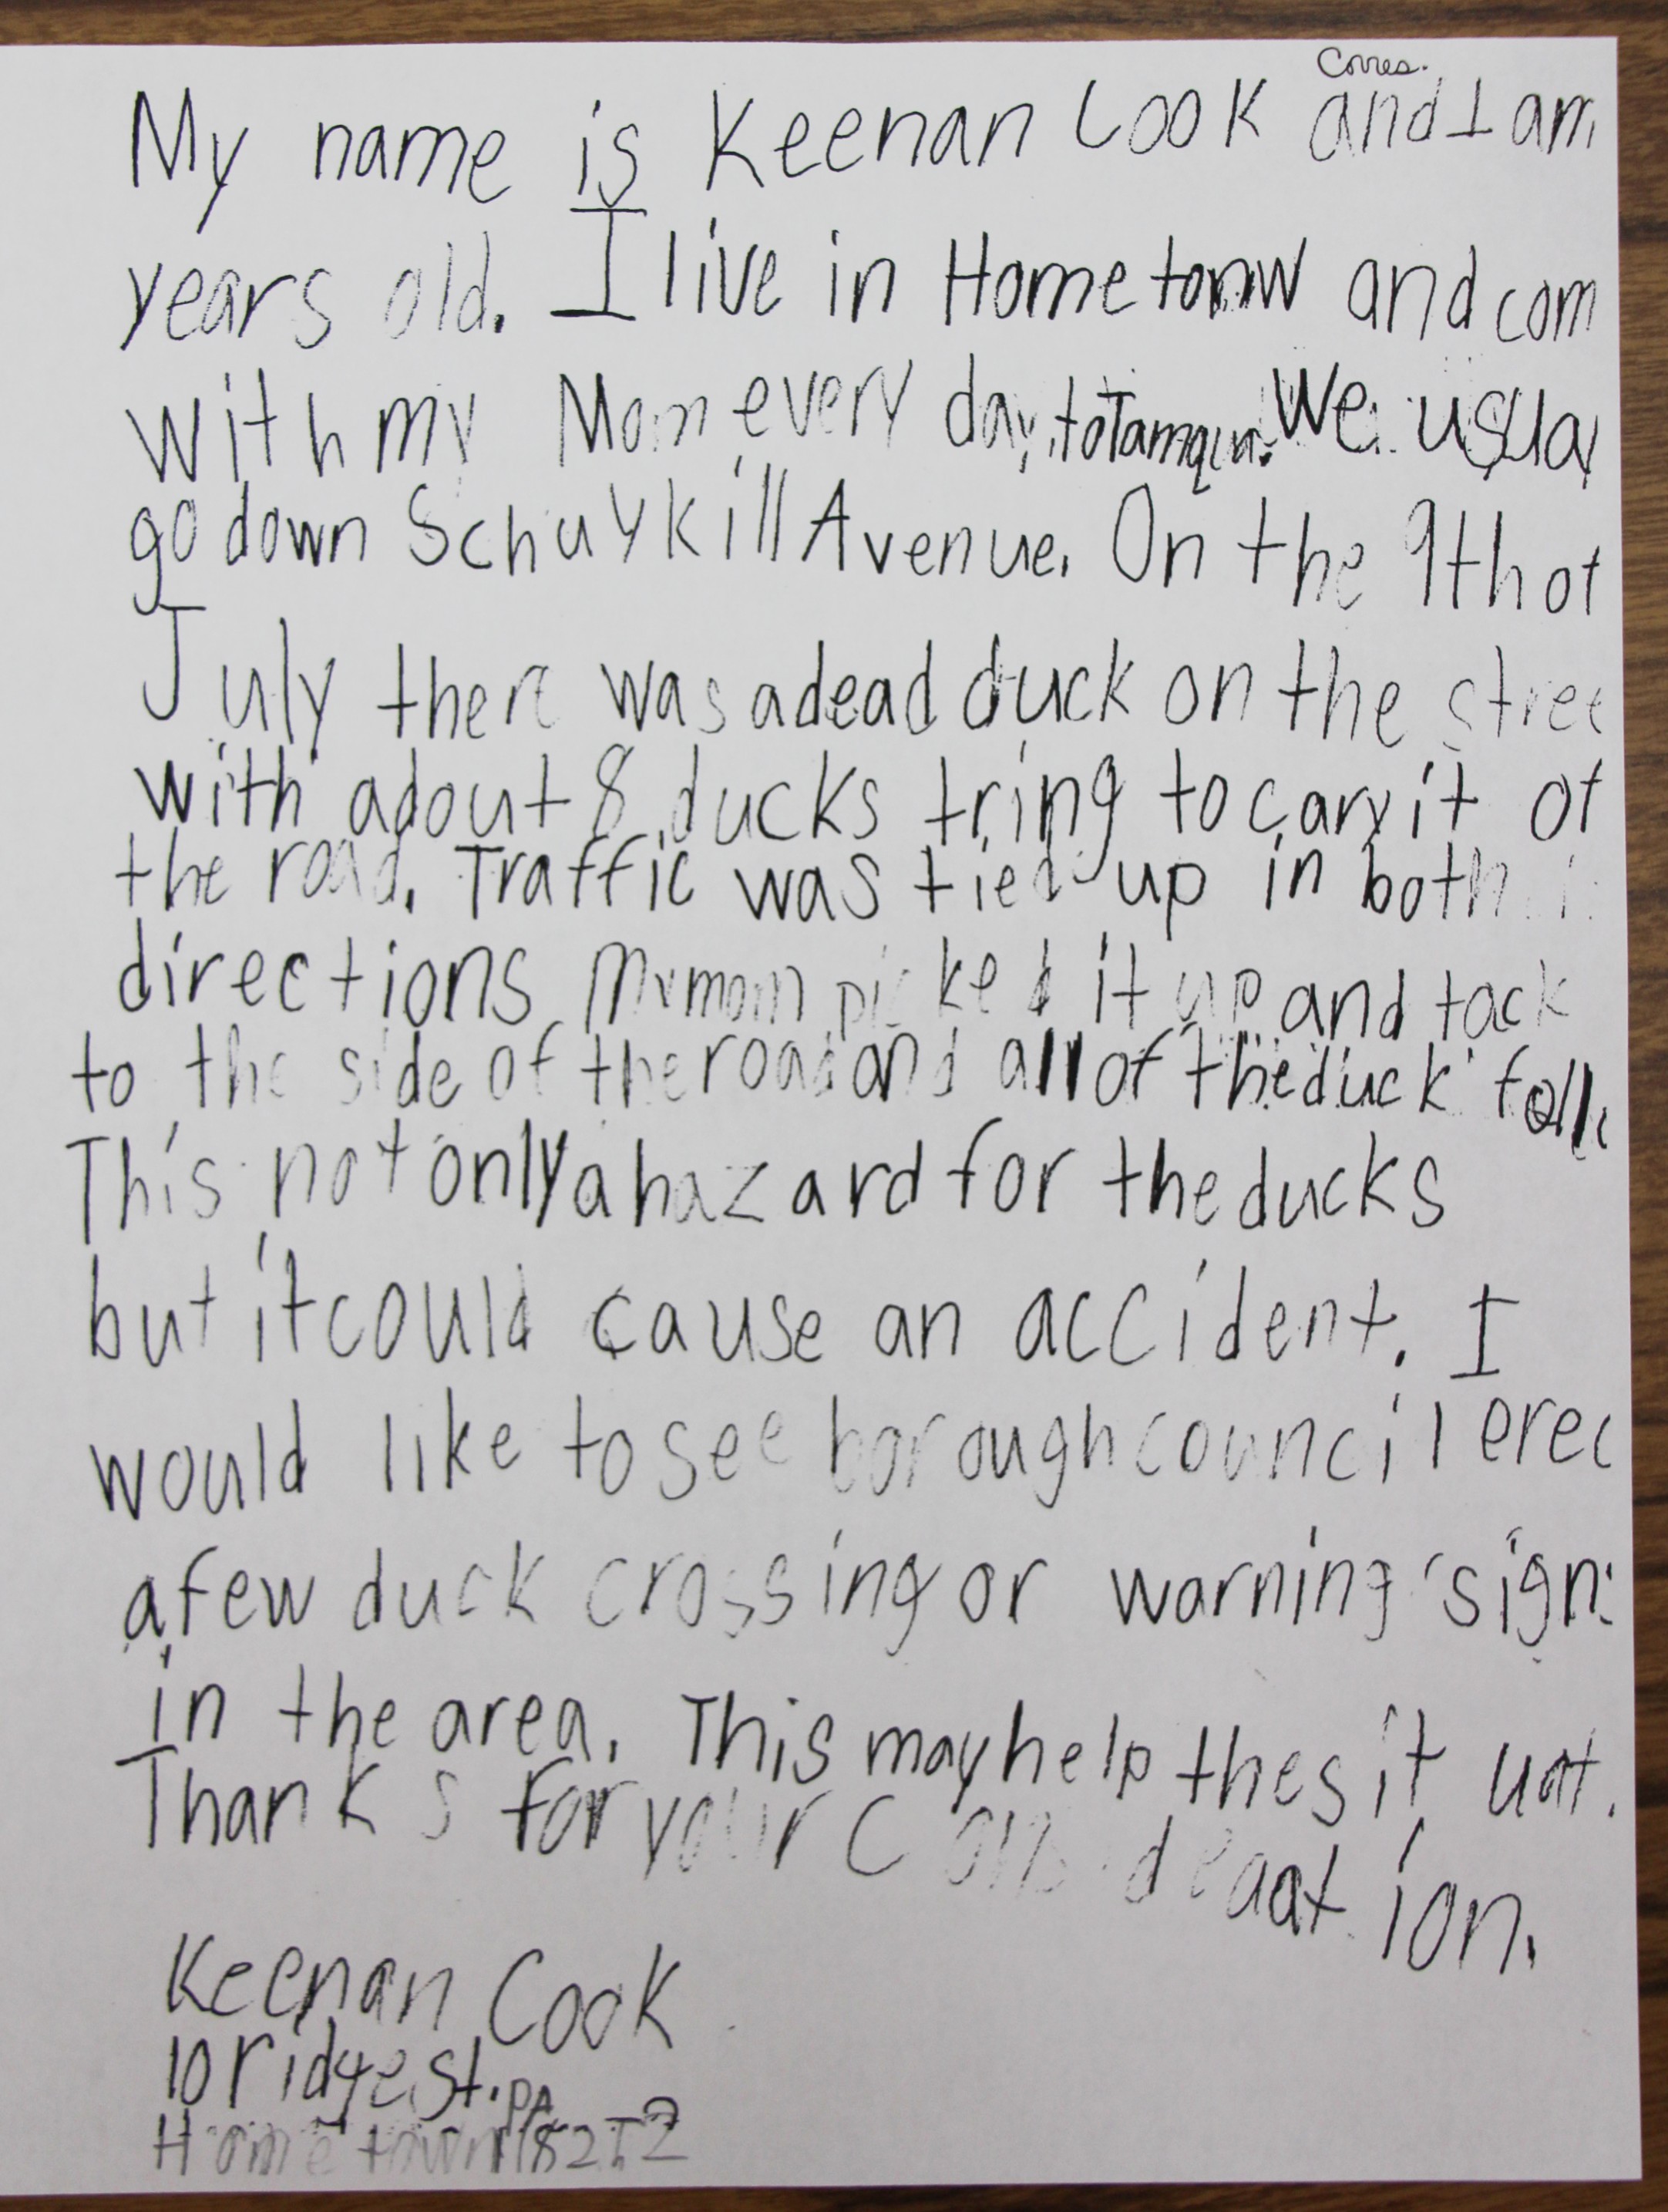 Corres.
My name is Keenan Cook and I am
years old. I live in Hometonw and com
with my Mom every day, to Tamqua. We usual
go down Schuykill Avenue. On the 9th of
July there was a dead duck on the stree
with adout 8 ducks tring to cary it of
the road. Traffic was tied up in both
directions My mom picked it up and tack
to the side of the road and all of the duck foll
This not only a hazard for the ducks
but it could cause an accident. I
would like to see borough council erec
a few duck crossing or warning signs
in the area. This may help the situat.
Thanks for your Consideaation.
Keenan Cook
10 ridge st.
Hometown PA 18252